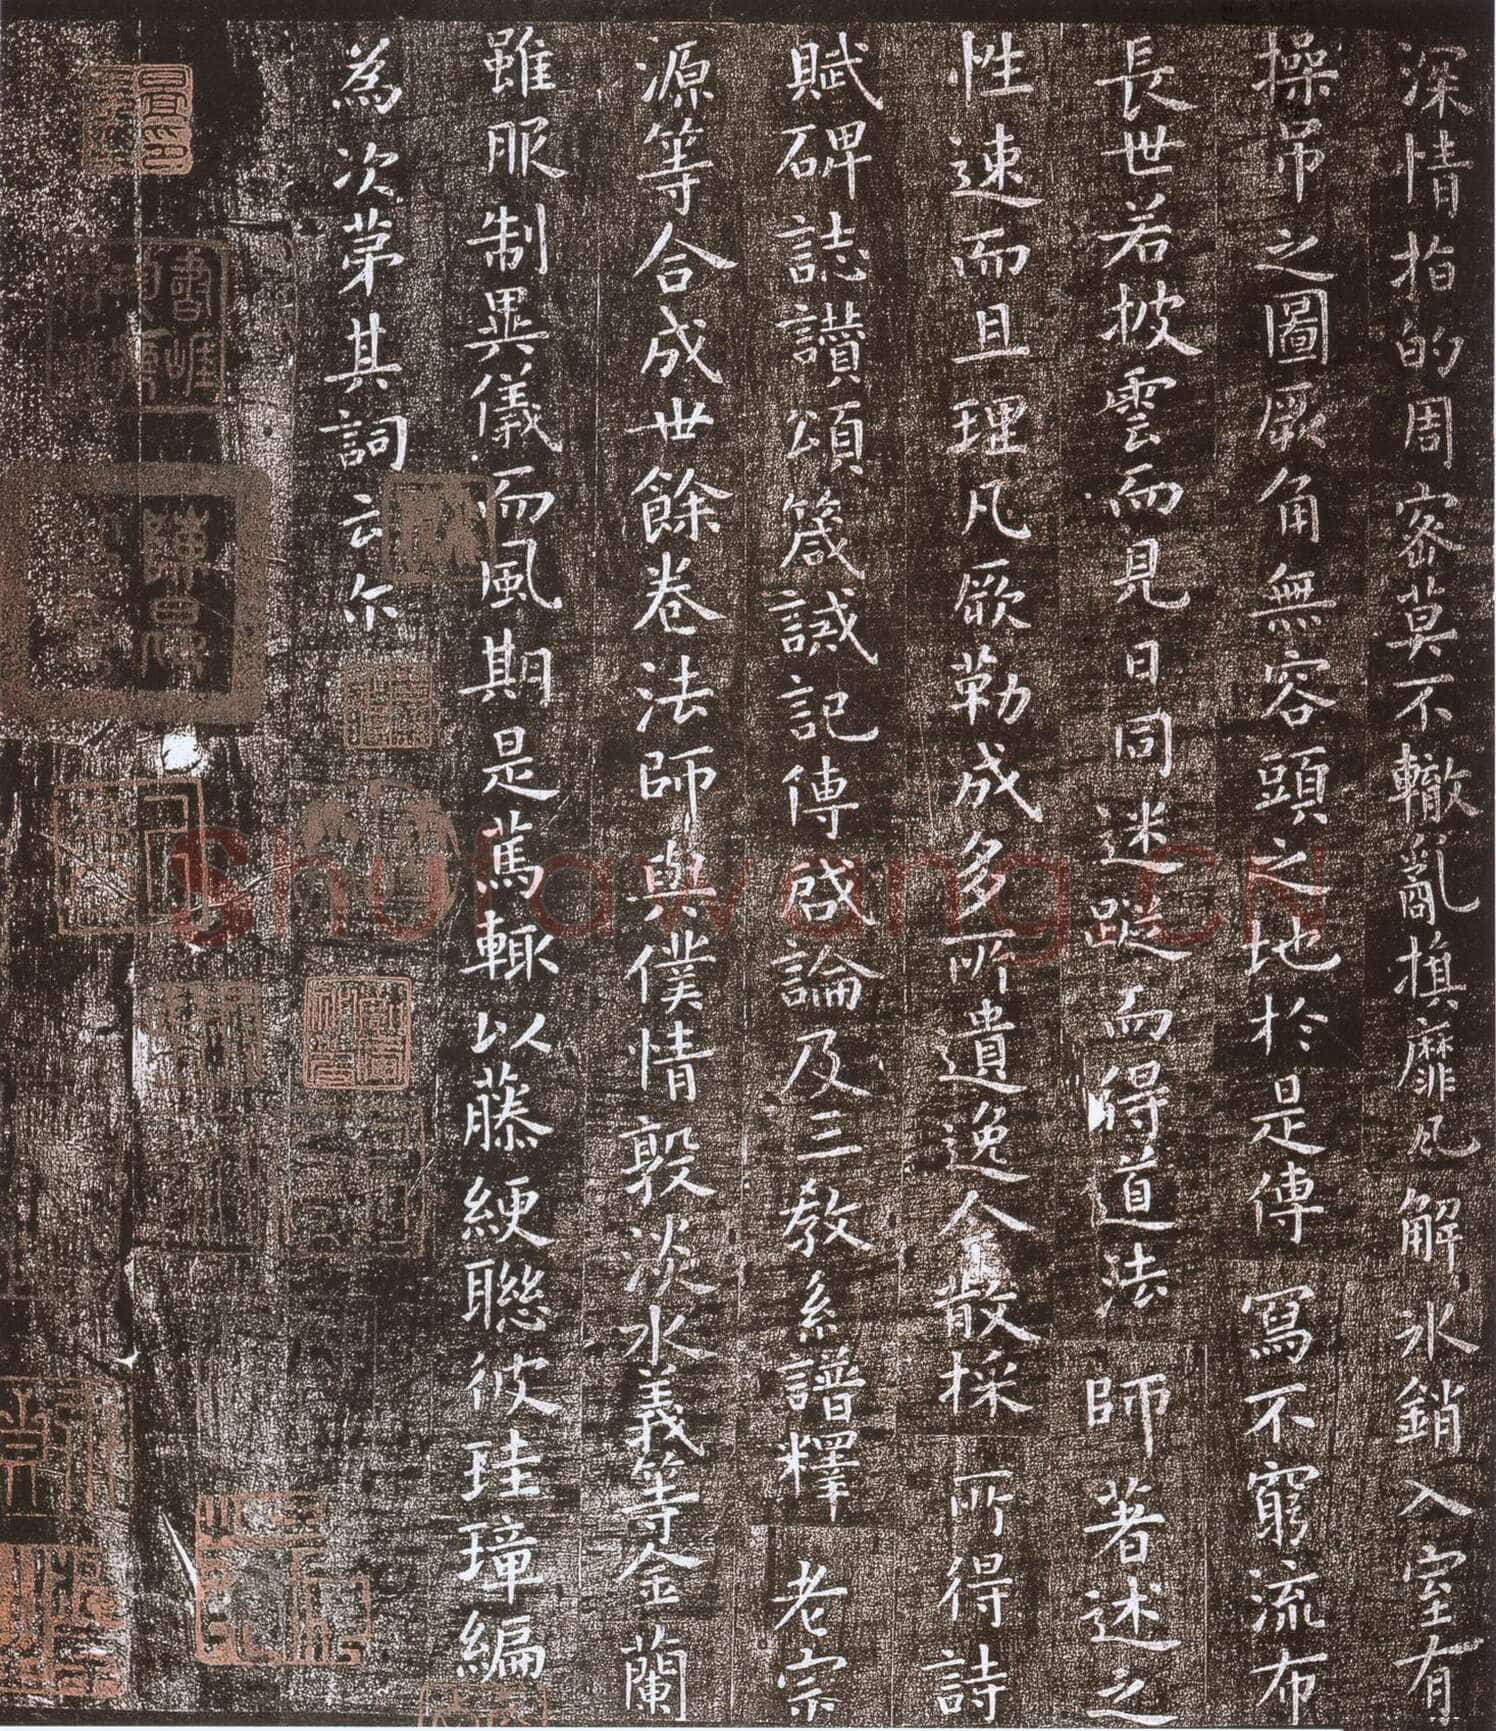 深情指的周密莫不轍亂旗靡凡解水銷入室有
操吊之圖厥角無容頭之地於是傳寫不窮流布
長世若披雲而見日同迷蹤而得道法師著述之
性速而且理凡厥勒成多所遺逸今散採所得詩
賦碑誌讃頌箴誡記傳啟論及三教系譜釋老宗
源等合成世餘卷法師與僕情敦淡水義等金蘭
雖服制異儀而風期是篤輒以藤緶聯彼珪璋編
為次第其詞云尔
Shufawang.CN